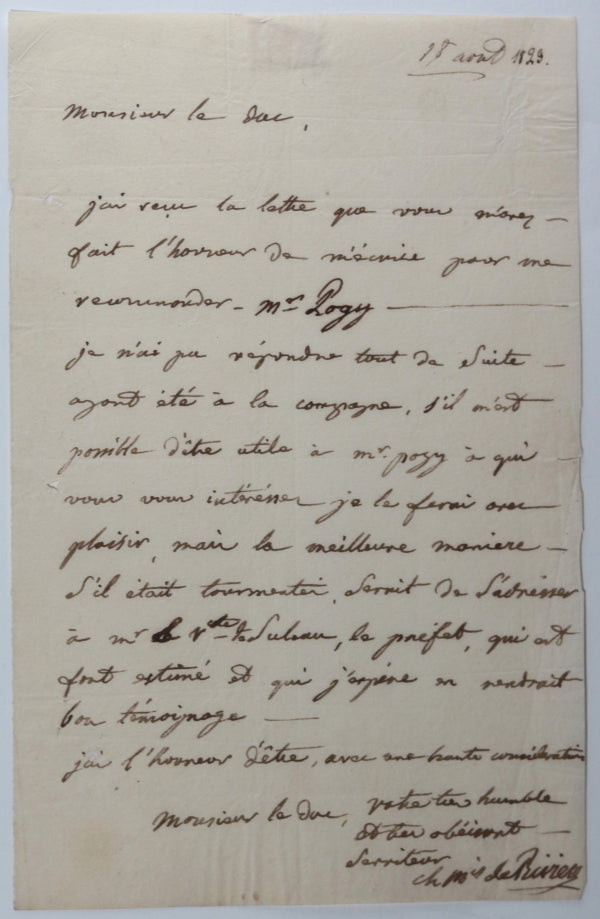 18 aout 1823.
Monsieur le duc,
jai reçu la lettre que vous m'avez
fait l'honneur de m'écrire pour me
recommander mr Pogy
je n'ai pu répondre tout de suite
ayant été à la campagne, s'il m'est
possible d'être utile à mr. pogy à qui
vous vous intéresser je le ferai avec
plaisir, mais la meilleure maniere
s'il était tourmenter, serait de s'adresser
à mr le Vte de Suleau, le préfet, qui est
fort estimé et qui j'espére en rendrait
bon témoignage
jai l'honneur d'être, avec une haute consideration
Monsieur le duc, votre tres humble
et tres obéissant
serviteur
ch mis de Riviere